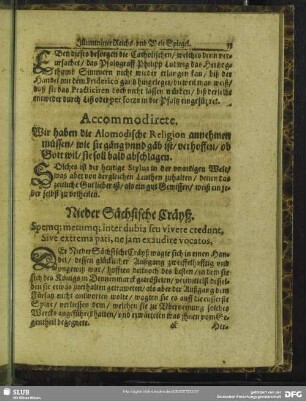 Illuminirter Reichs- und Welt Spiegel. 33
Eben dieses besorgen die Catholischen / welches denn ver-
ursachet / das Pfaltzgraff Philipp Ludwig das Hertzog-
thumb Simmern nicht wieder erlangen kan / biß der
Handel mit dem Friderico gar hingeleget / dieweil man weiß /
daß sie das Practiciren doch nicht lassen würden / biß der letzte
entweder durch List oder per force in die Pfaltz eingeführet.
Accommodirete.
Wir haben die Alomodische Religion annehmen
müssen / wie sie gäng unnd gäb ist / verhoffen / ob
Gott wil / sie soll bald abschlagen.
Solches ist der heutige Stylus in der
was aber von dergleichen Leuthen zuhalten / denen das
zeitliche Gut lieber ist / als ein gut Gewissen / weiß ein je-
der selbst zu urtheilen.
Nieder Sächsische Cräyß.
Spemq; metumq; inter dubia seu vivere credunt,
Sive extrema pati, ne jam exaudire vocatos,
Der Nieder Sächsische Cräyß wagte sich in einen Han-
del / dessen glücklicher Außgang zweiffelhafftig und
ungewiß war / hofften dennoch das beste / in dem sie
sich des Königs in Dennemarck getrösteten /
sie etwas zuerhalten getraweten / als aber der Außgang dem
Fürsatz nicht antworten wolte / wagten sie es auff die eusserste
Spitze / verliessen dem / welchen sie zu Vberwegung solches
Wercks angeführet hatten / und erwarteten was ihnen vom Ge-
gentheil begegnete.
E Hie-
SLUB
Wir führen Wissen.
DFG
Deutsche
Forschungsgemeinschaft